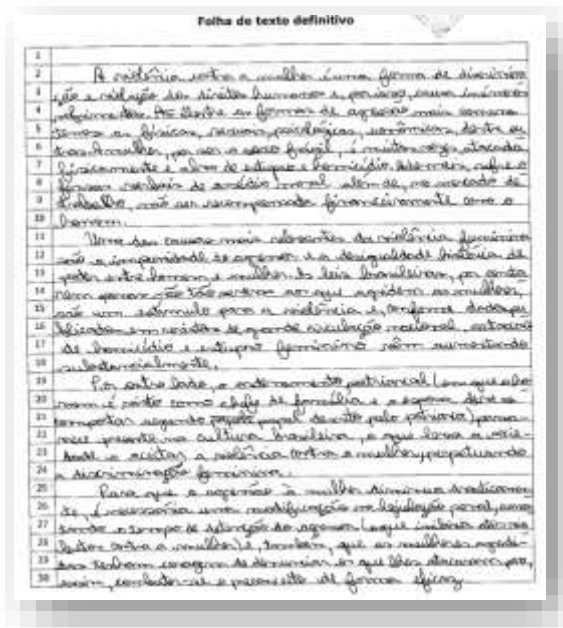 Folha de texto definitivo
1
2 A violência contra a mulher é uma forma de discrimina
3 ção e violação dos direitos humanos e, por isso, causa inúmeros
4 sofrimentos. Dentre as formas de agressão mais comuns
5 temos as físicas, sexuais, psicológicas, econômicas, dentre ou
6 tras. A mulher, por ser o sexo frágil, é muitas vezes atacada
7 fisicamente e alvo de estupro e homicídio. Ademais, sofre
8 formas verbais de assédio moral além de, no mercado de
9 trabalho, não ser recompensada financeiramente como o
10 homem.
11 Uma das causas mais relevantes da violência feminina
12 são a impunidade do agressor e a desigualdade histórica de
13 poder entre homem e mulher. As leis brasileiras, por conta
14 penas não tão severas aos que agridem as mulheres,
15 são um estímulo para a violência e, conforme dados pu
16 blicados em revistas de grande circulação nacional,
17 de homicídio e estupro feminino vêm aumentando
18 substancialmente.
19 Por outro lado, o ordenamento patriarcal (em que o ho
20 mem é visto como chefe de família e a esposa deve se
21 comportar segundo papel descrito pelo patriarca) perma
22 nece presente na cultura brasileira, o que leva a socie
23 dade a aceitar a violência contra a mulher, perpetuando
24 a discriminação feminina.
25 Para que a agressão à mulher diminua drasticamen
26 te, é necessária uma modificação na legislação penal, aumen
27 tando o tempo de detenção do agressor (o que inibiria
28 contra a mulher) e, também, que as mulheres agredi
29 das tenham coragem de denunciar os que lhes atacaram para,
30 assim, combater-se o preconceito de forma eficaz.